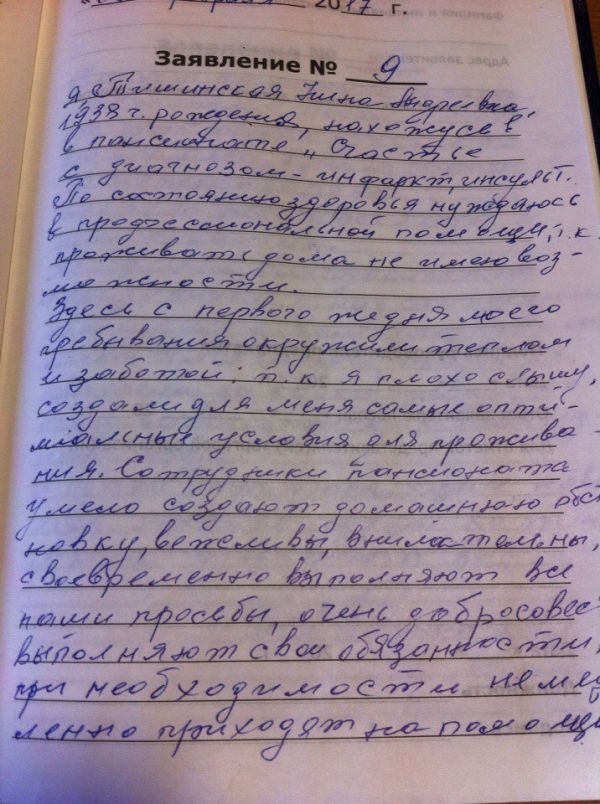 2017 г.
Заявление № 9
Я, Тишинская Инна Андреевна,
1938 г. рождения, нахожусь в
в пансионате „Счастье
с диагнозом - инфаркт, инсульт.
По состоянию здоровья нуждаюсь
в профессиональной помощи, т.к.
проживать дома не имею воз-
можности.
Здесь с первого же дня моего
пребывания окружили теплом
и заботой: т.к. я плохо слышу,
создали для меня самые опти-
мальные условия для прожива-
ния. Сотрудники пансионата
умело создают домашнюю обст
новку, вежливы, внимательны,
своевременно выполняют все
нами просьбы, очень добросовес
выполняют свои обязанности,
при необходимости неме
ленно приходят на помощь